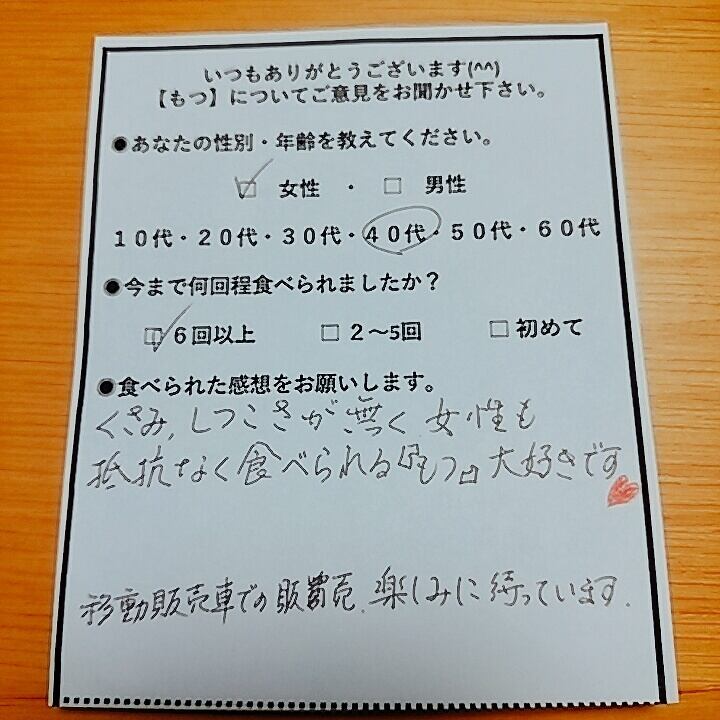 いつもありがとうございます(^^)
【もつ】についてご意見をお聞かせ下さい。
●あなたの性別・年齢を教えてください。
☑ 女性 ・ □ 男性
10代・20代・30代・40代・50代・60代
●今まで何回程食べられましたか？
☑ 6回以上 □ 2～5回 □ 初めて
●食べられた感想をお願いします。
くさみ,しつこさが無く女性も
抵抗なく食べられる『もつ』大好きです
移動販売車での販売、楽しみに待っています.